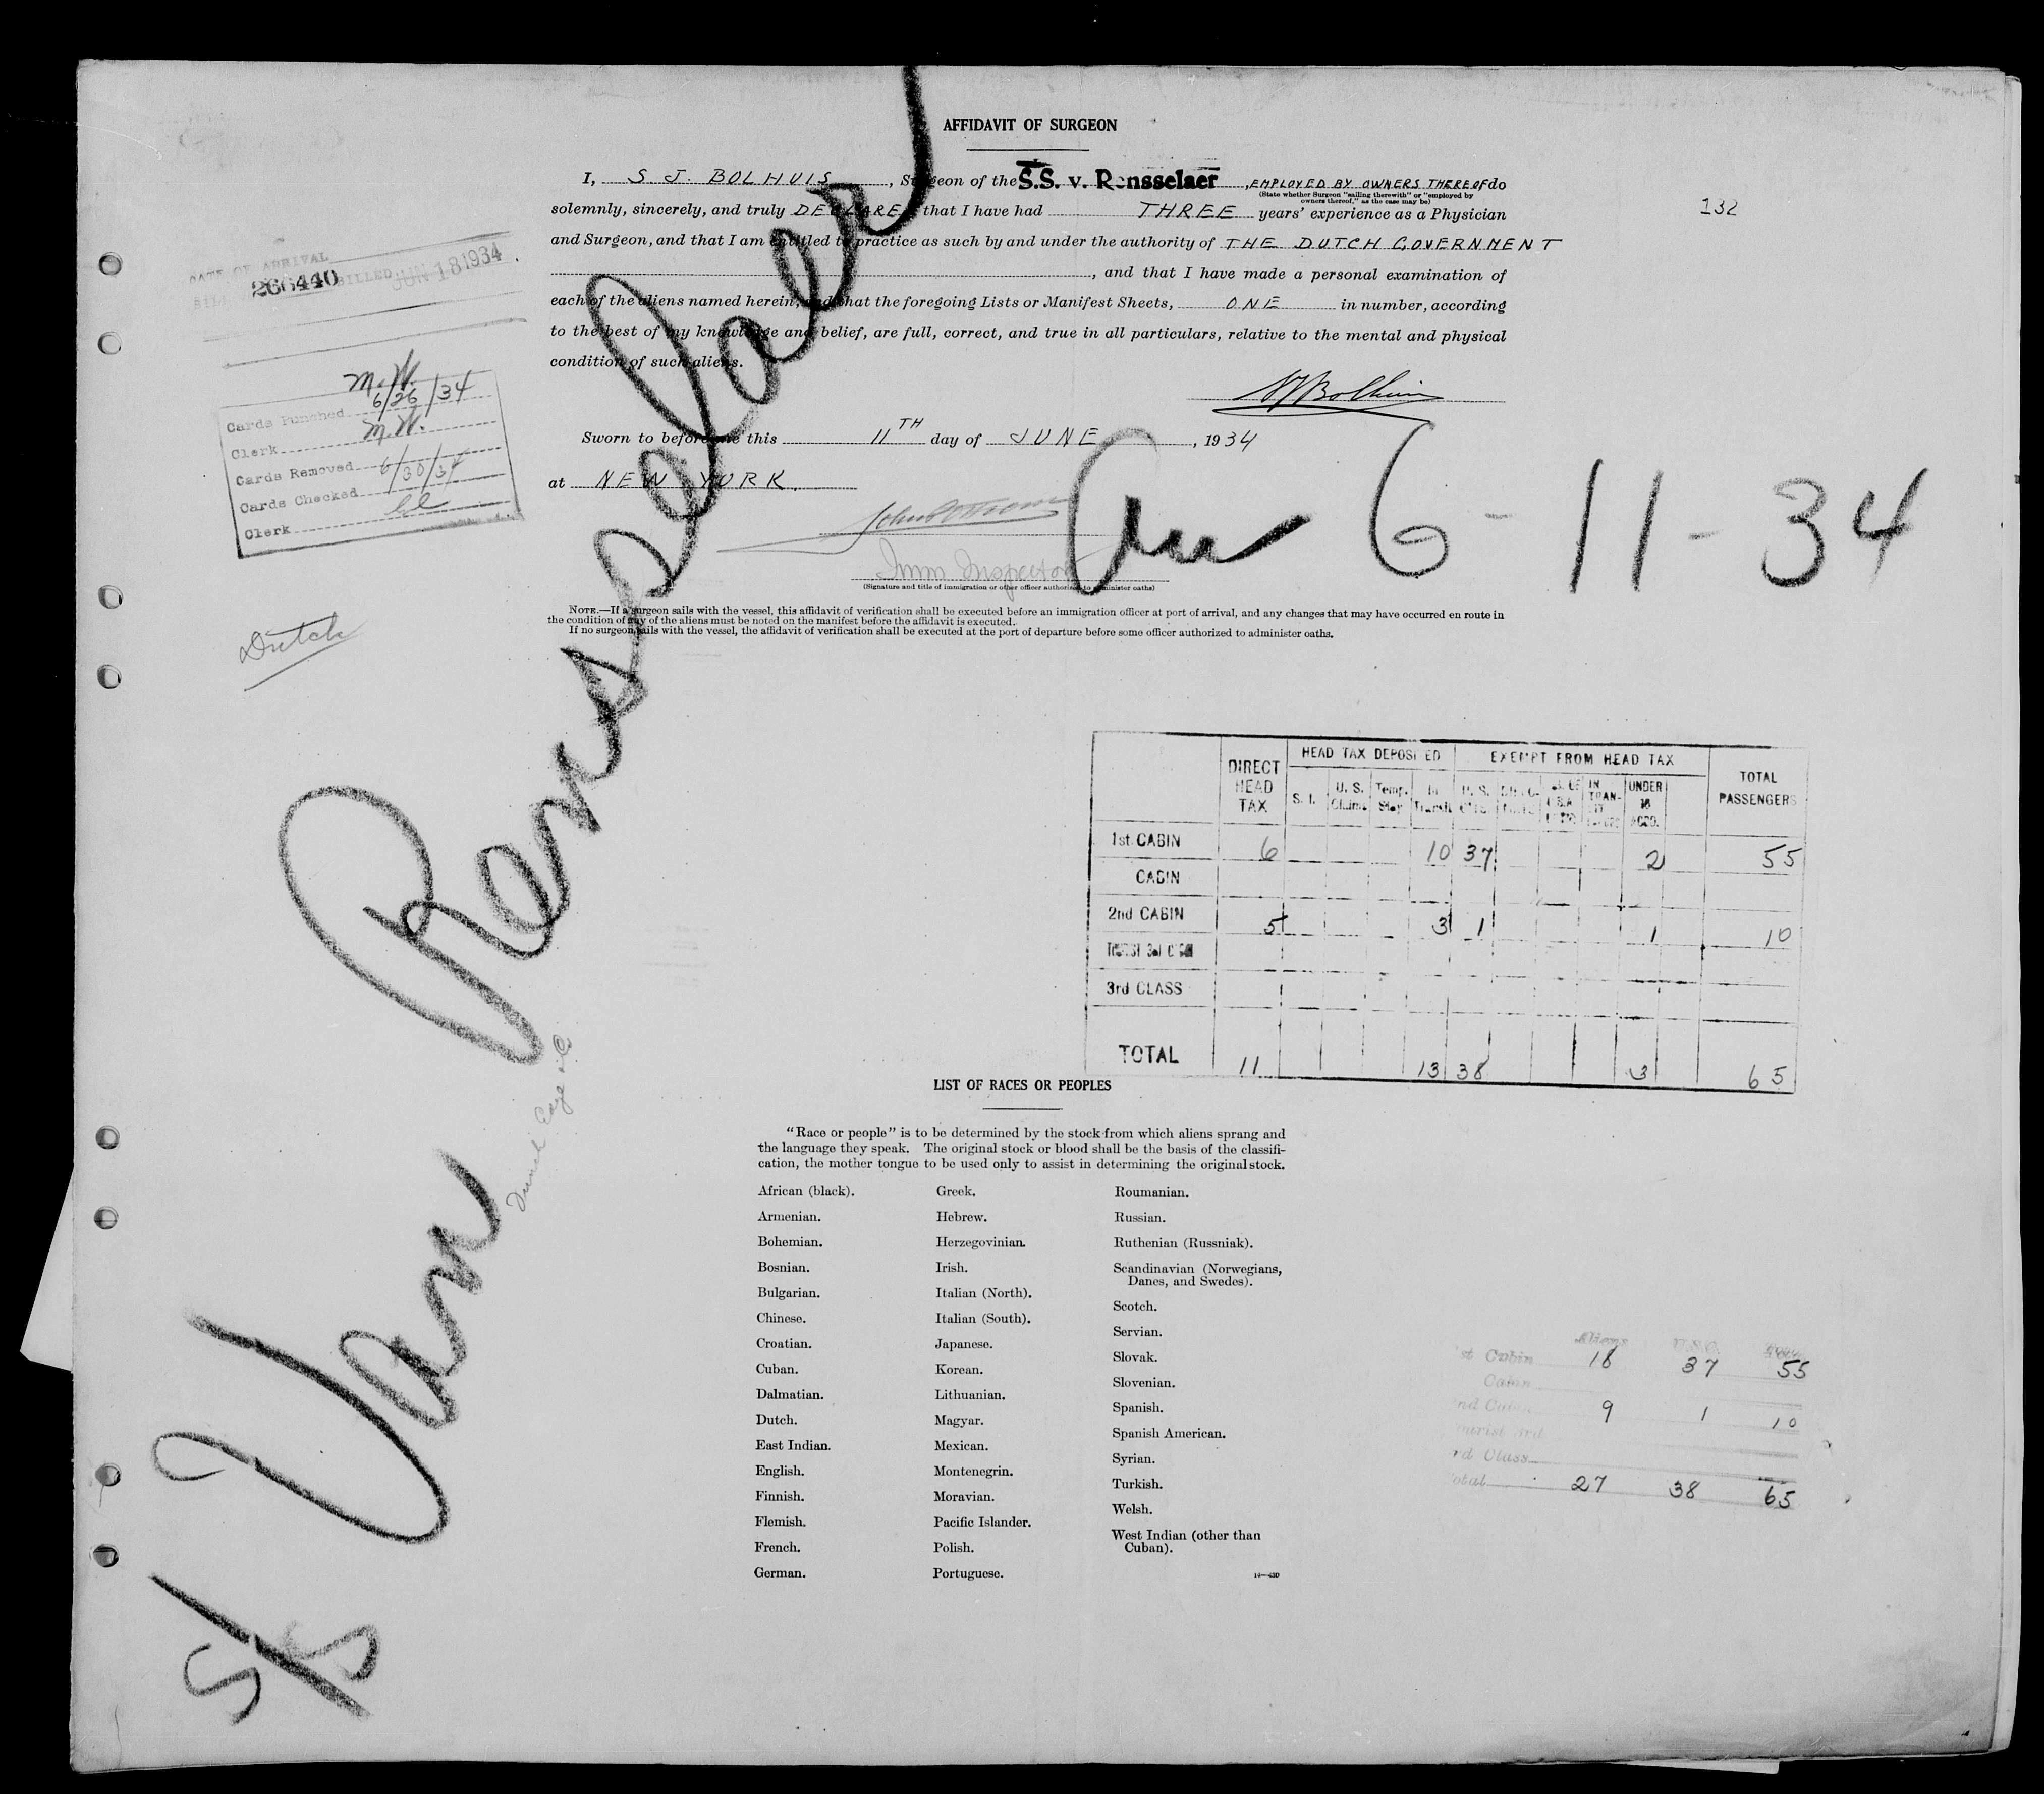 AFFIDAVIT OF SURGEON
I, S. J. BOLHUIS, Surgeon of the S.S. v. Rensselaer, EMPLOYED BY OWNERS THEREOF do
(State whether Surgeon "sailing therewith" or "employed by
owners thereof," as the case may be)
solemnly, sincerely, and truly DECLARE that I have had THREE years' experience as a Physician
132
and Surgeon, and that I am entitled to practice as such by and under the authority of THE DUTCH GOVERNMENT
, and that I have made a personal examination of
each of the aliens named herein, and that the foregoing Lists or Manifest Sheets, ONE in number, according
to the best of my knowledge and belief, are full, correct, and true in all particulars, relative to the mental and physical
condition of such aliens.
S J Bolhuis
Sworn to before me this 11TH day of JUNE, 1934
at NEW YORK.
Imm Inspector
(Signature and title of immigration or other officer authorized to administer oaths)
NOTE.—If a surgeon sails with the vessel, this affidavit of verification shall be executed before an immigration officer at port of arrival, and any changes that may have occurred en route in
the condition of any of the aliens must be noted on the manifest before the affidavit is executed.
If no surgeon sails with the vessel, the affidavit of verification shall be executed at the port of departure before some officer authorized to administer oaths.
DATE OF ARRIVAL
BILL 266440 BILLED JUN 18 1934
M.W.
Cards Punched 6/26/34
Clerk M.W.
Cards Removed 6/30/34
Cards Checked
Clerk
Dutch
S/S Van Rensselaer
Arr 6-11-34
DIRECT HEAD TAX
HEAD TAX DEPOSITED
EXEMPT FROM HEAD TAX
TOTAL PASSENGERS
S. I. U. S. Claims Temp. Stay In Transit U. S. IN TRANSIT UNDER 16 ACCO.
1st CABIN 6 10 37 2 55
CABIN
2nd CABIN 5 3 1 1 10
3rd CLASS
TOTAL 11 13 38 3 65
LIST OF RACES OR PEOPLES
"Race or people" is to be determined by the stock from which aliens sprang and
the language they speak. The original stock or blood shall be the basis of the classifi-
cation, the mother tongue to be used only to assist in determining the original stock.
African (black).
Armenian.
Bohemian.
Bosnian.
Bulgarian.
Chinese.
Croatian.
Cuban.
Dalmatian.
Dutch.
East Indian.
English.
Finnish.
Flemish.
French.
German.
Greek.
Hebrew.
Herzegovinian.
Irish.
Italian (North).
Italian (South).
Japanese.
Korean.
Lithuanian.
Magyar.
Mexican.
Montenegrin.
Moravian.
Pacific Islander.
Polish.
Portuguese.
Roumanian.
Russian.
Ruthenian (Russniak).
Scandinavian (Norwegians,
Danes, and Swedes).
Scotch.
Servian.
Slovak.
Slovenian.
Spanish.
Spanish American.
Syrian.
Turkish.
Welsh.
West Indian (other than
Cuban).
14—430
Aliens U.S.C. Total
st Cabin 18 37 55
Cabin
nd Cabin 9 1 10
ourist 3rd
rd Class
otal 27 38 65